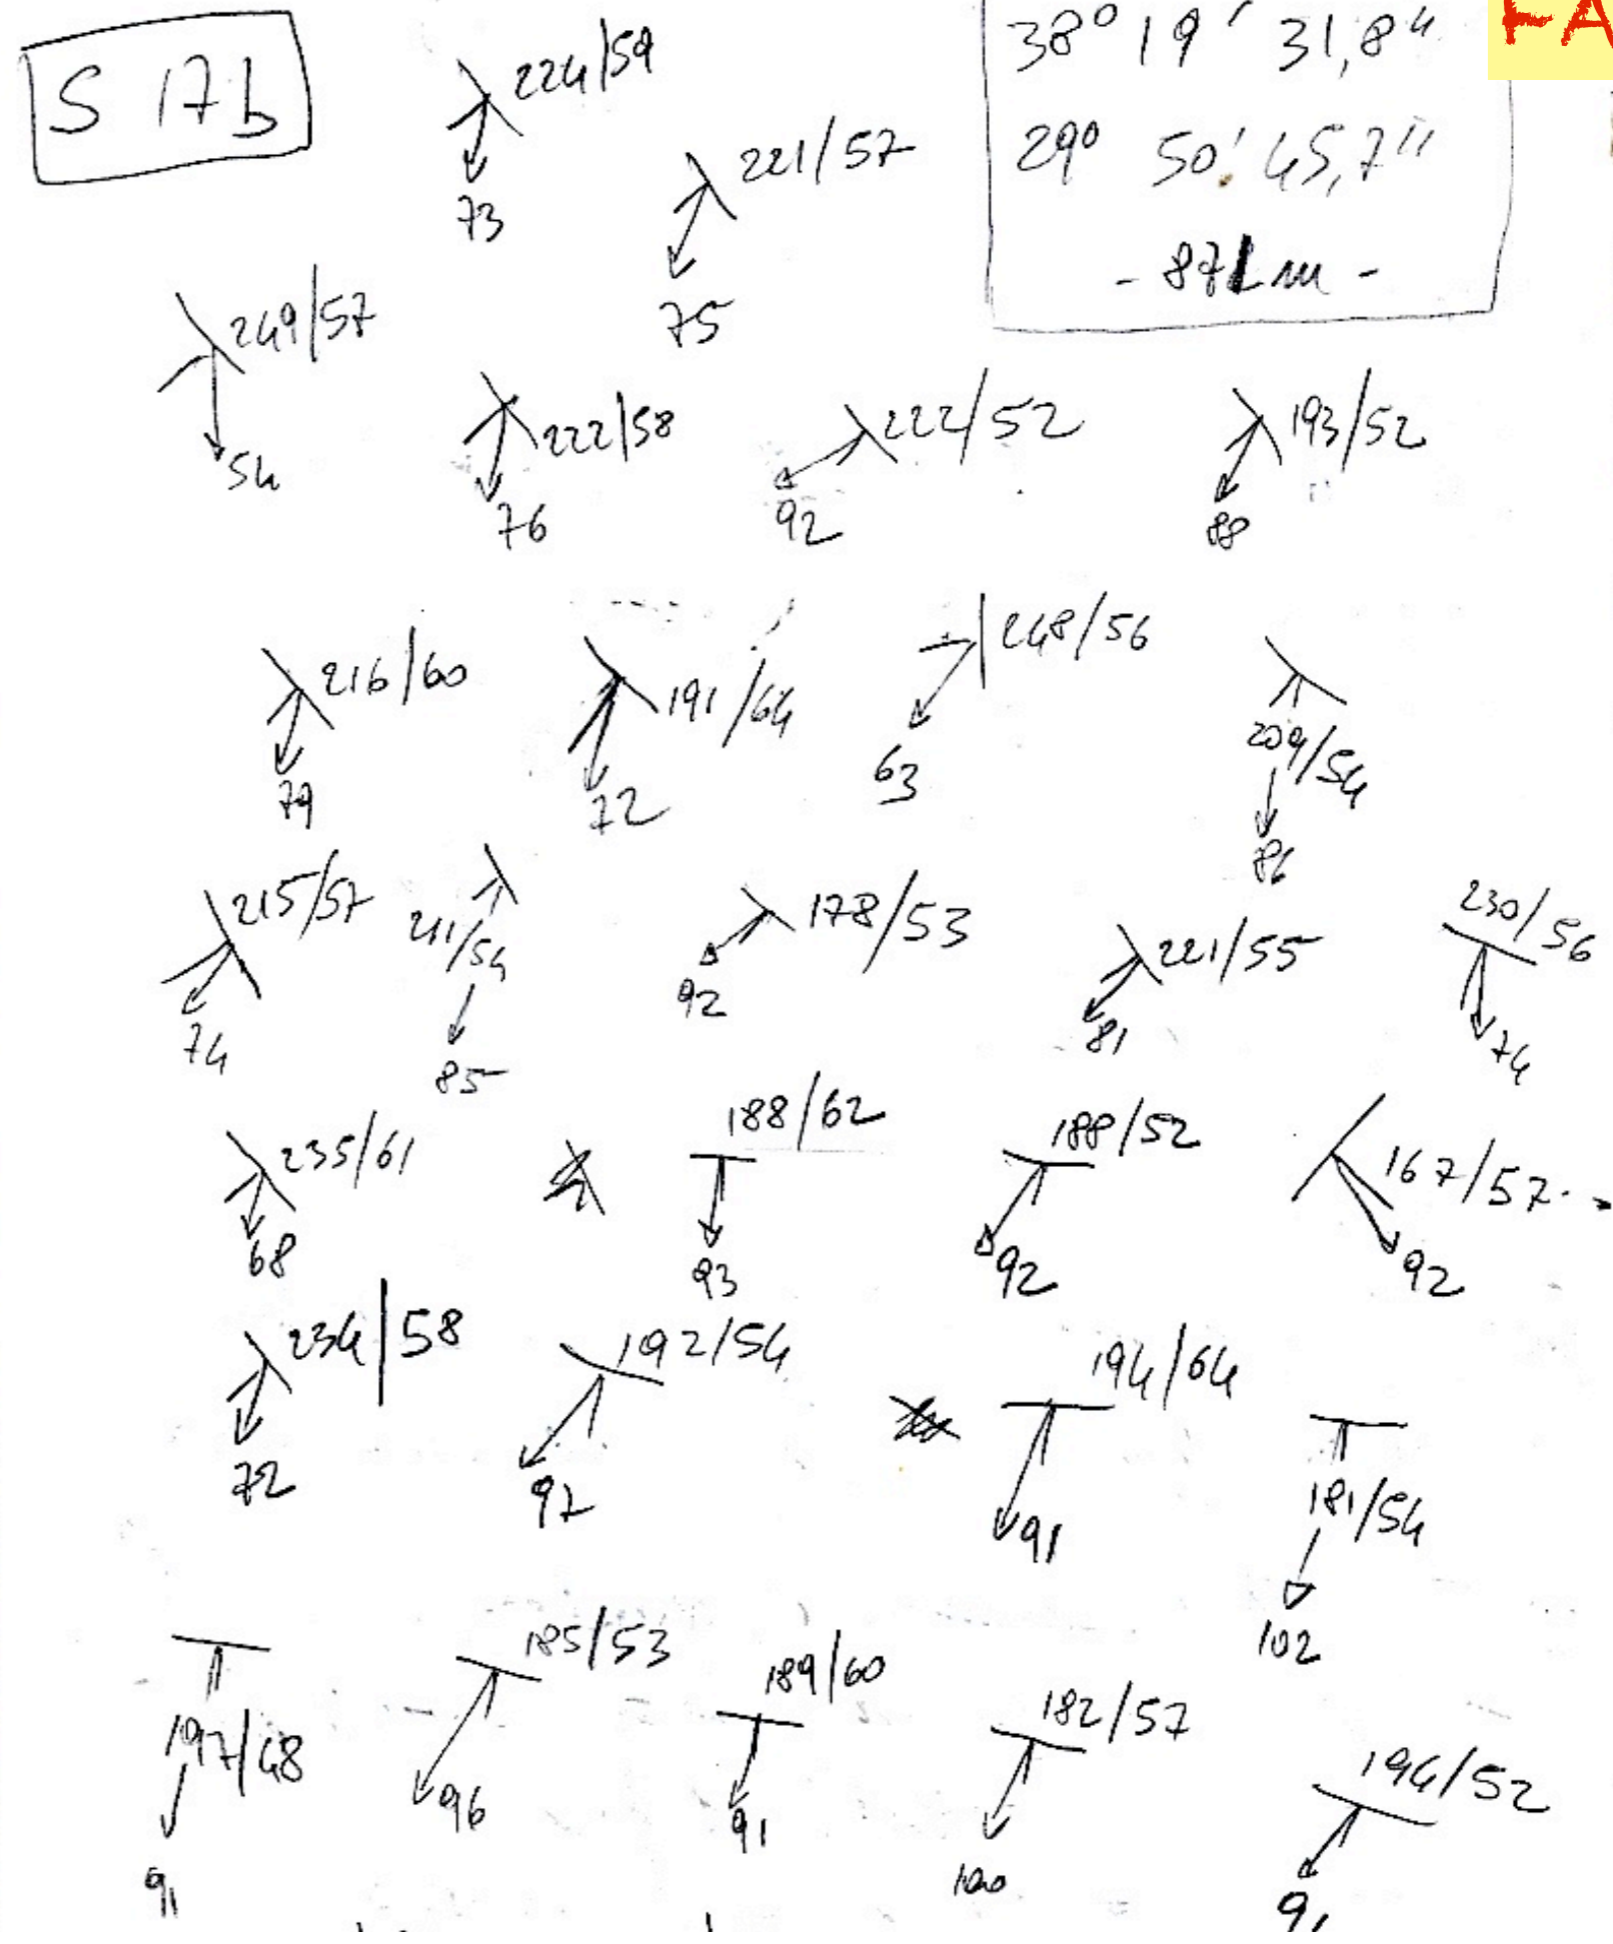 S 17b
38° 19' 31,8"
29° 50' 45,7"
- 871 m -
FA
224/59
73
221/57
75
249/57
54
222/58
76
222/52
92
193/52
88
216/60
79
191/64
72
248/56
63
209/54
86
215/57
74
211/54
85
178/53
92
221/55
81
230/56
74
235/61
68
188/62
93
188/52
92
167/57
92
234/58
72
192/54
97
194/64
91
181/54
102
197/48
91
185/53
96
189/60
91
182/57
100
194/52
91